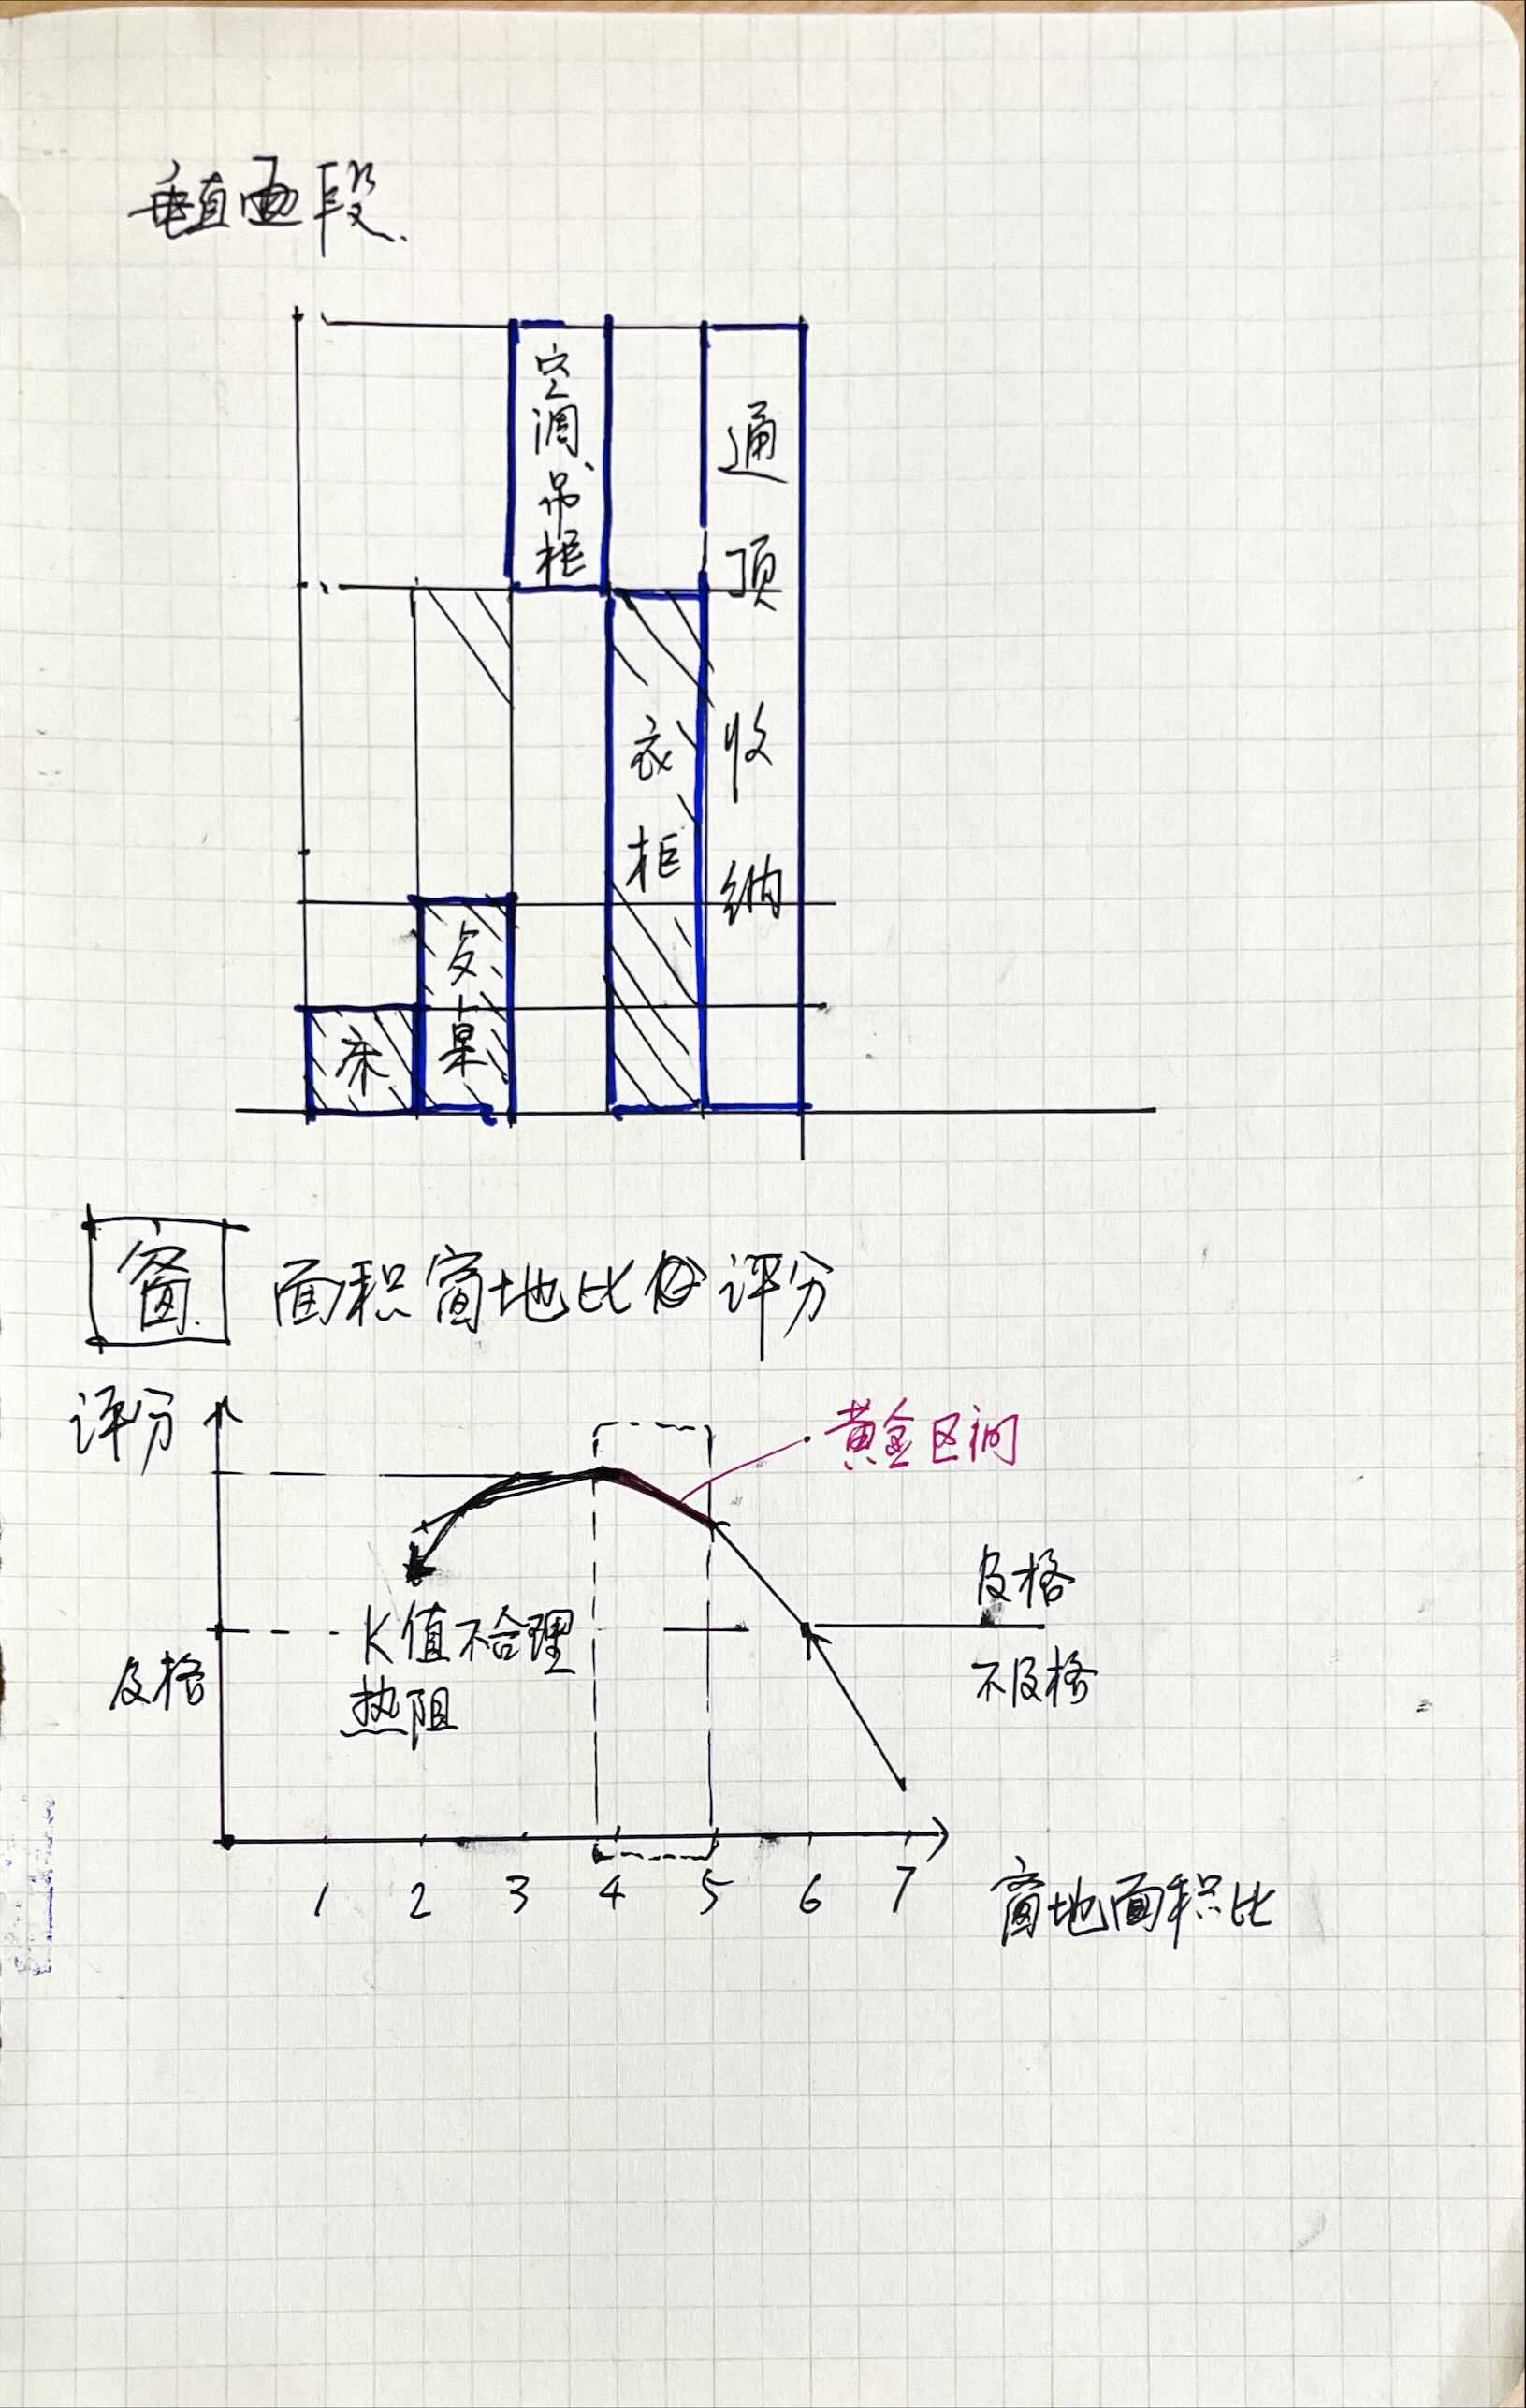 垂直画段
空调吊柜
通顶收纳
衣柜
桌
床
窗
面积窗地比评分
评分
黄金区间
及格
K值不合理
不及格
及格
热阻
1 2 3 4 5 6 7
窗地面积比